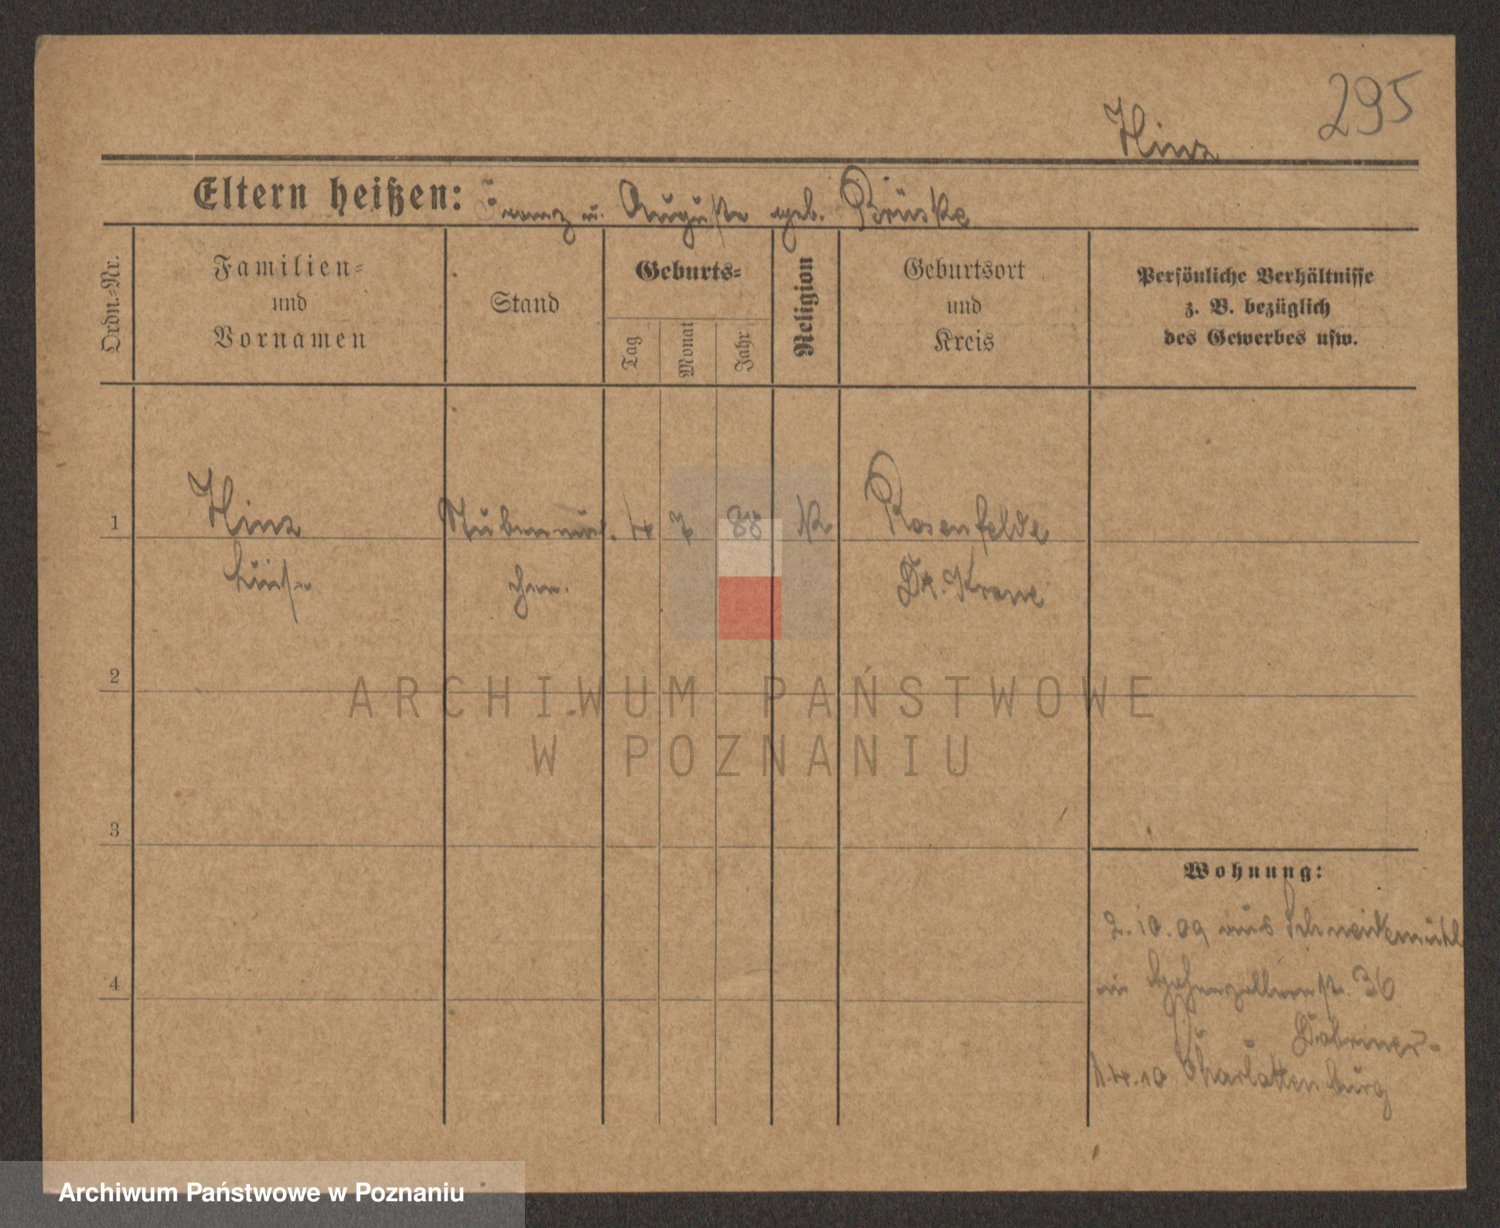 295
Hinz
Eltern heißen: Franz u. Auguste geb. Brüske
Ordn.-Nr.
Familien-
und
Vornamen
Stand
Geburts-
Tag
Monat
Jahr
Religion
Geburtsort
und
Kreis
Persönliche Verhältnisse
z. B. bezüglich
des Gewerbes usw.
1
Hinz
Stubenmäd-
4
7
88
K
Rosenfelde
Luise
chen.
Dt. Krone
2
ARCHIWUM PAŃSTWOWE
W POZNANIU
3
Wohnung:
2.10.09 aus Schneidemühl
4
Hohenzollernstr. 36
1.4.10 Charlottenburg
Archiwum Państwowe w Poznaniu